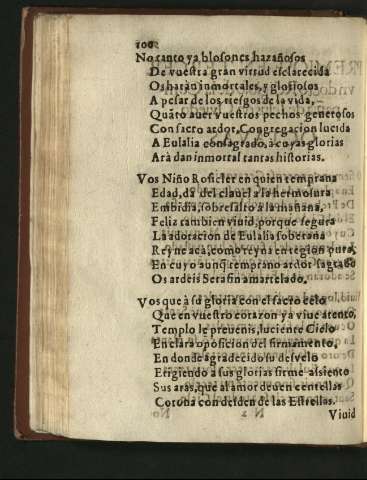 100
No tanto ya blosones hazañosos
De vuestra gran virtud esclarecida
Os haràn inmortales, y gloriosos
A pesar de los riesgos de la vida,
Quãto auer vuestros pechos generosos
Con sacro ardor, Congregacion lucida
A Eulalia consagrado, à cuyas glorias
Arà dan inmortal tantas historias.
Vos Niño Rosicler en quien temprana
Edad, dà del clauel a la hermosura
Embidia, sobresalto à la mañana,
Feliz tambien viuid, porque segura
La adoracion de Eulalia soberana
Reyne acà, como reyna en region pura,
En cuyo aunq̃ temprano ardor sagrado
Os ardeis Serafin amartelado.
Vos que à sũ gloria con el sacro celo
Que en vuestro corazon ya viue atento,
Templo le preuenis, luciente Cielo
En clara oposicion del firmamento,
En donde agradecido su desvelo
Erigiendo à sus glorias firme assiento
Sus aras, que al amor deuen centellas
Coroña con desden de las Estrellas.
Viuid